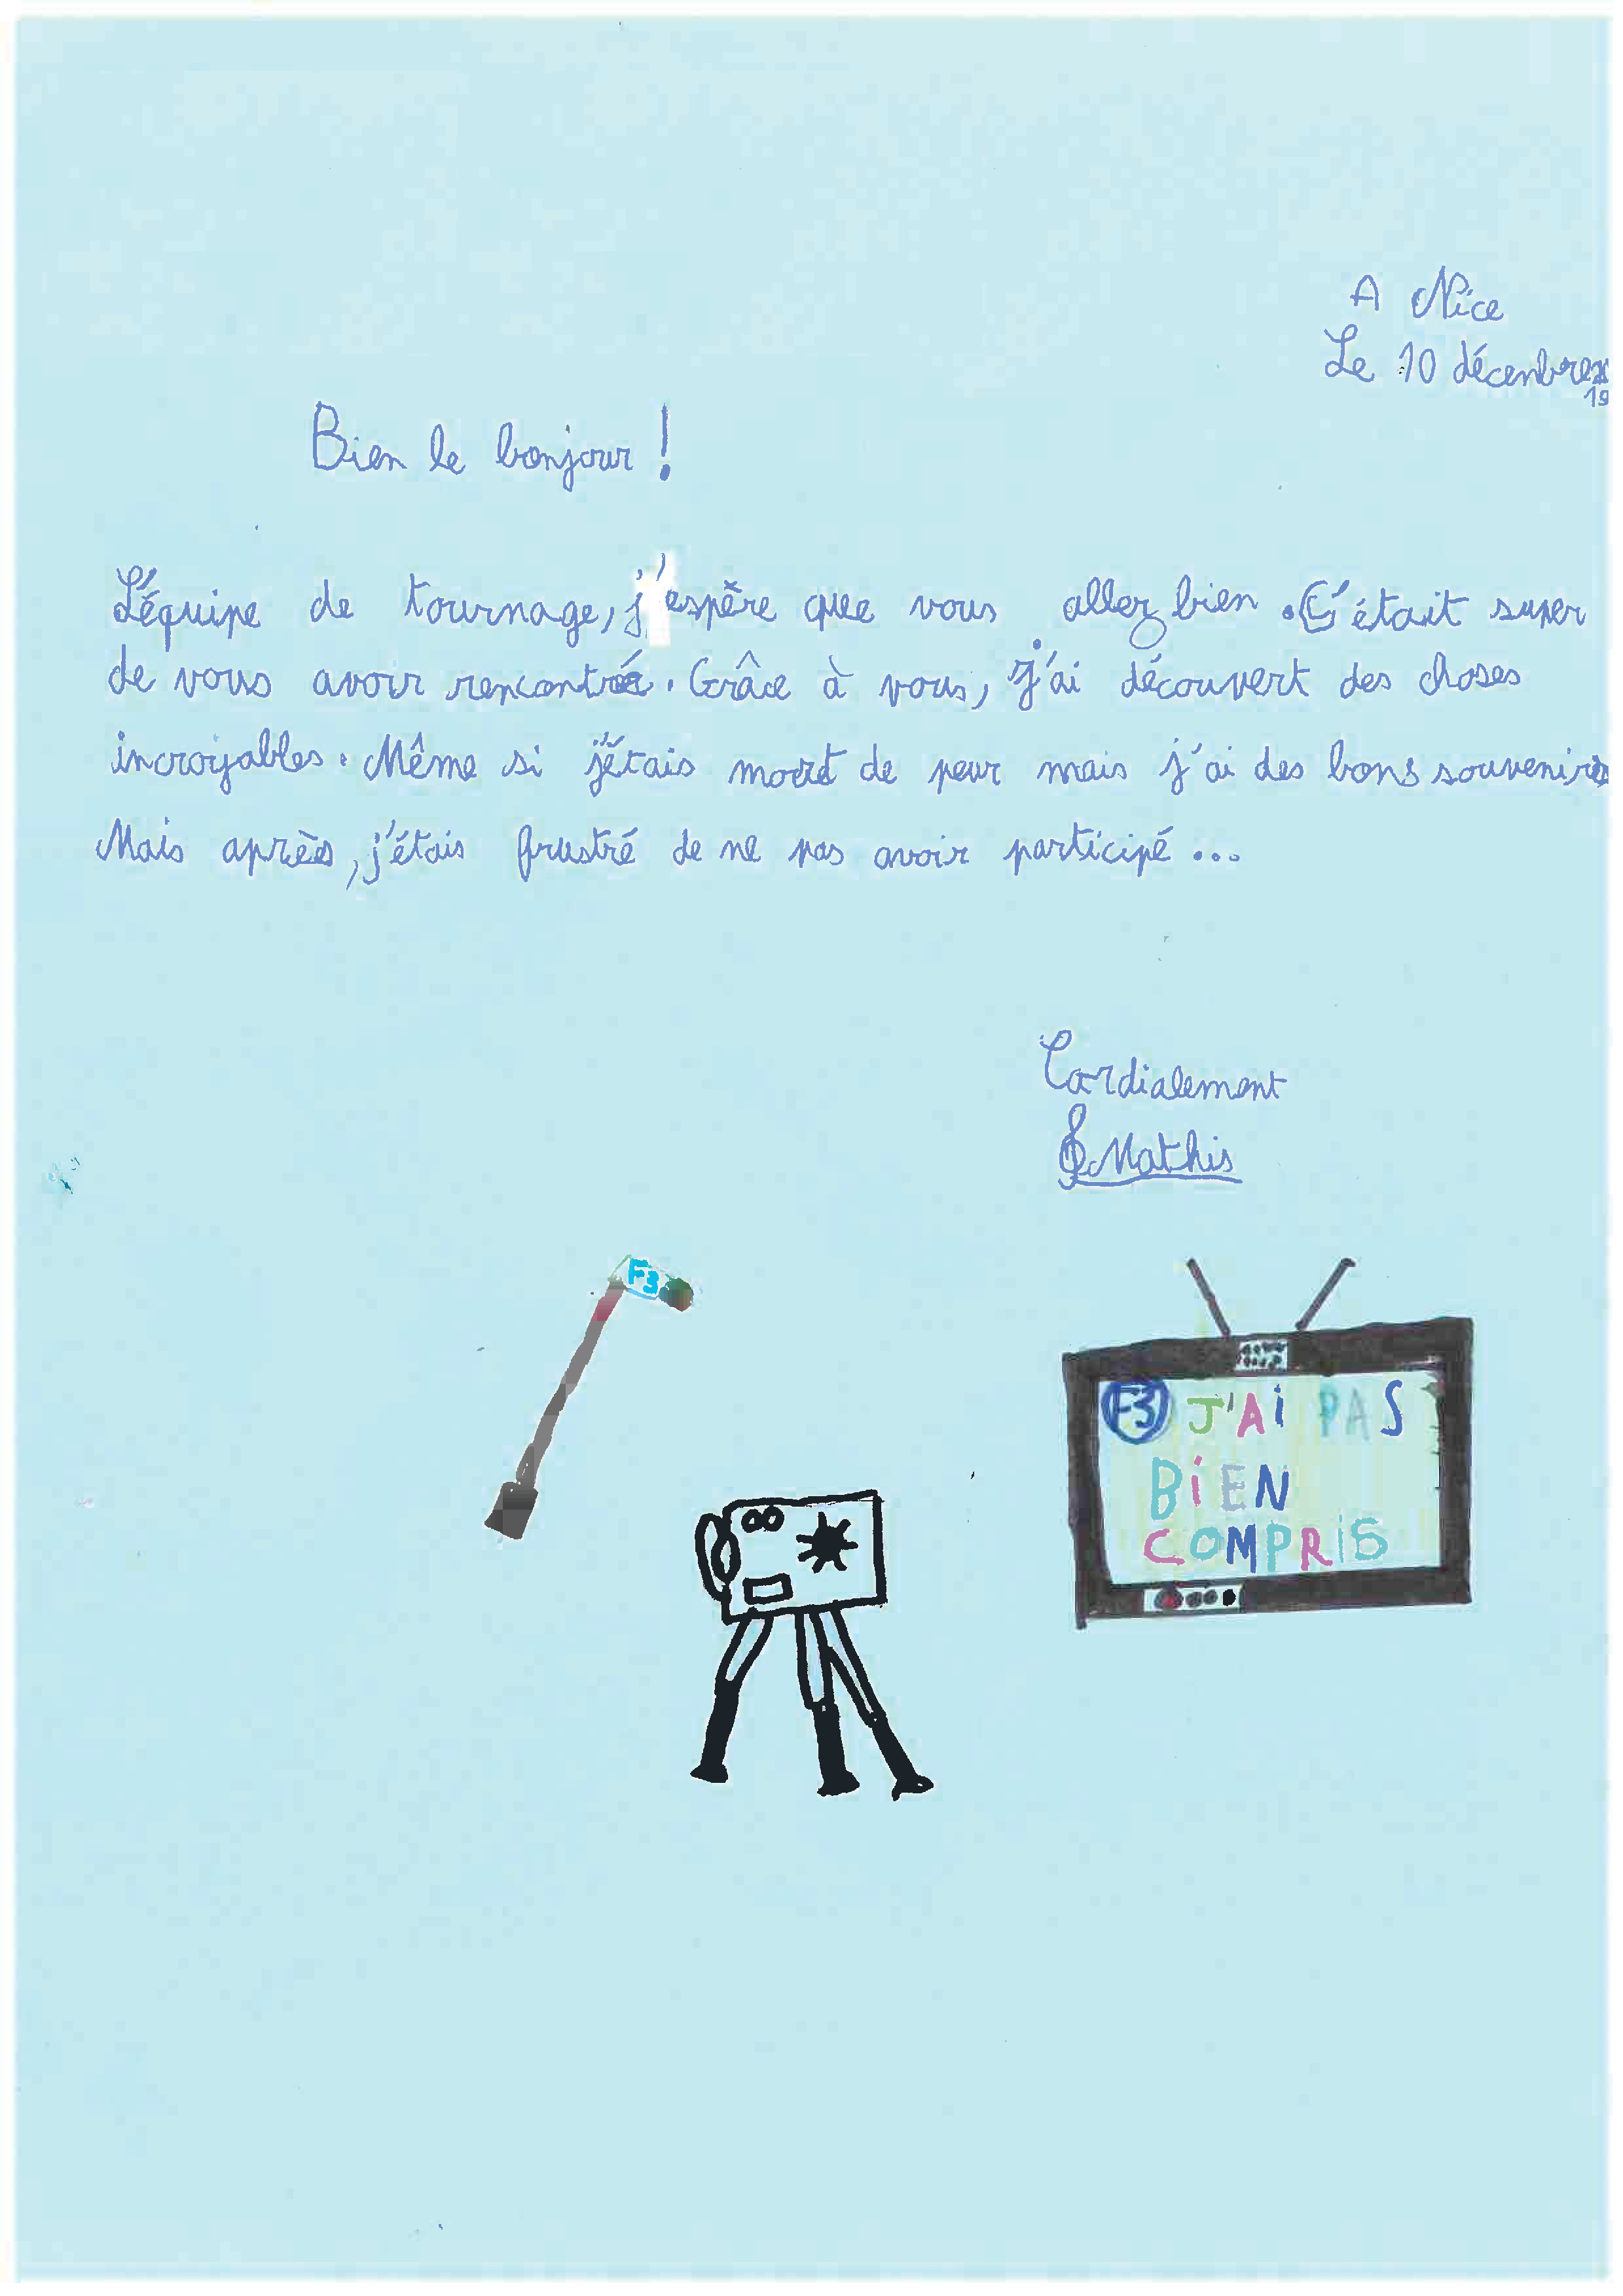 A Nice
Le 10 décenbre
19
Bien le bonjour !
L'équipe de tournage, j'espère que vous allez bien . C'était super
de vous avoir rencontré. Grâce à vous, j'ai découvert des choses
incroyables. Même si j'étais mort de peur mais j'ai des bons souvenirs
Mais après, j'étais frustré de ne pas avoir participé ...
Cordialement
Mathis
F3
F3 J'Ai PAS
BiEN
COMPRiS